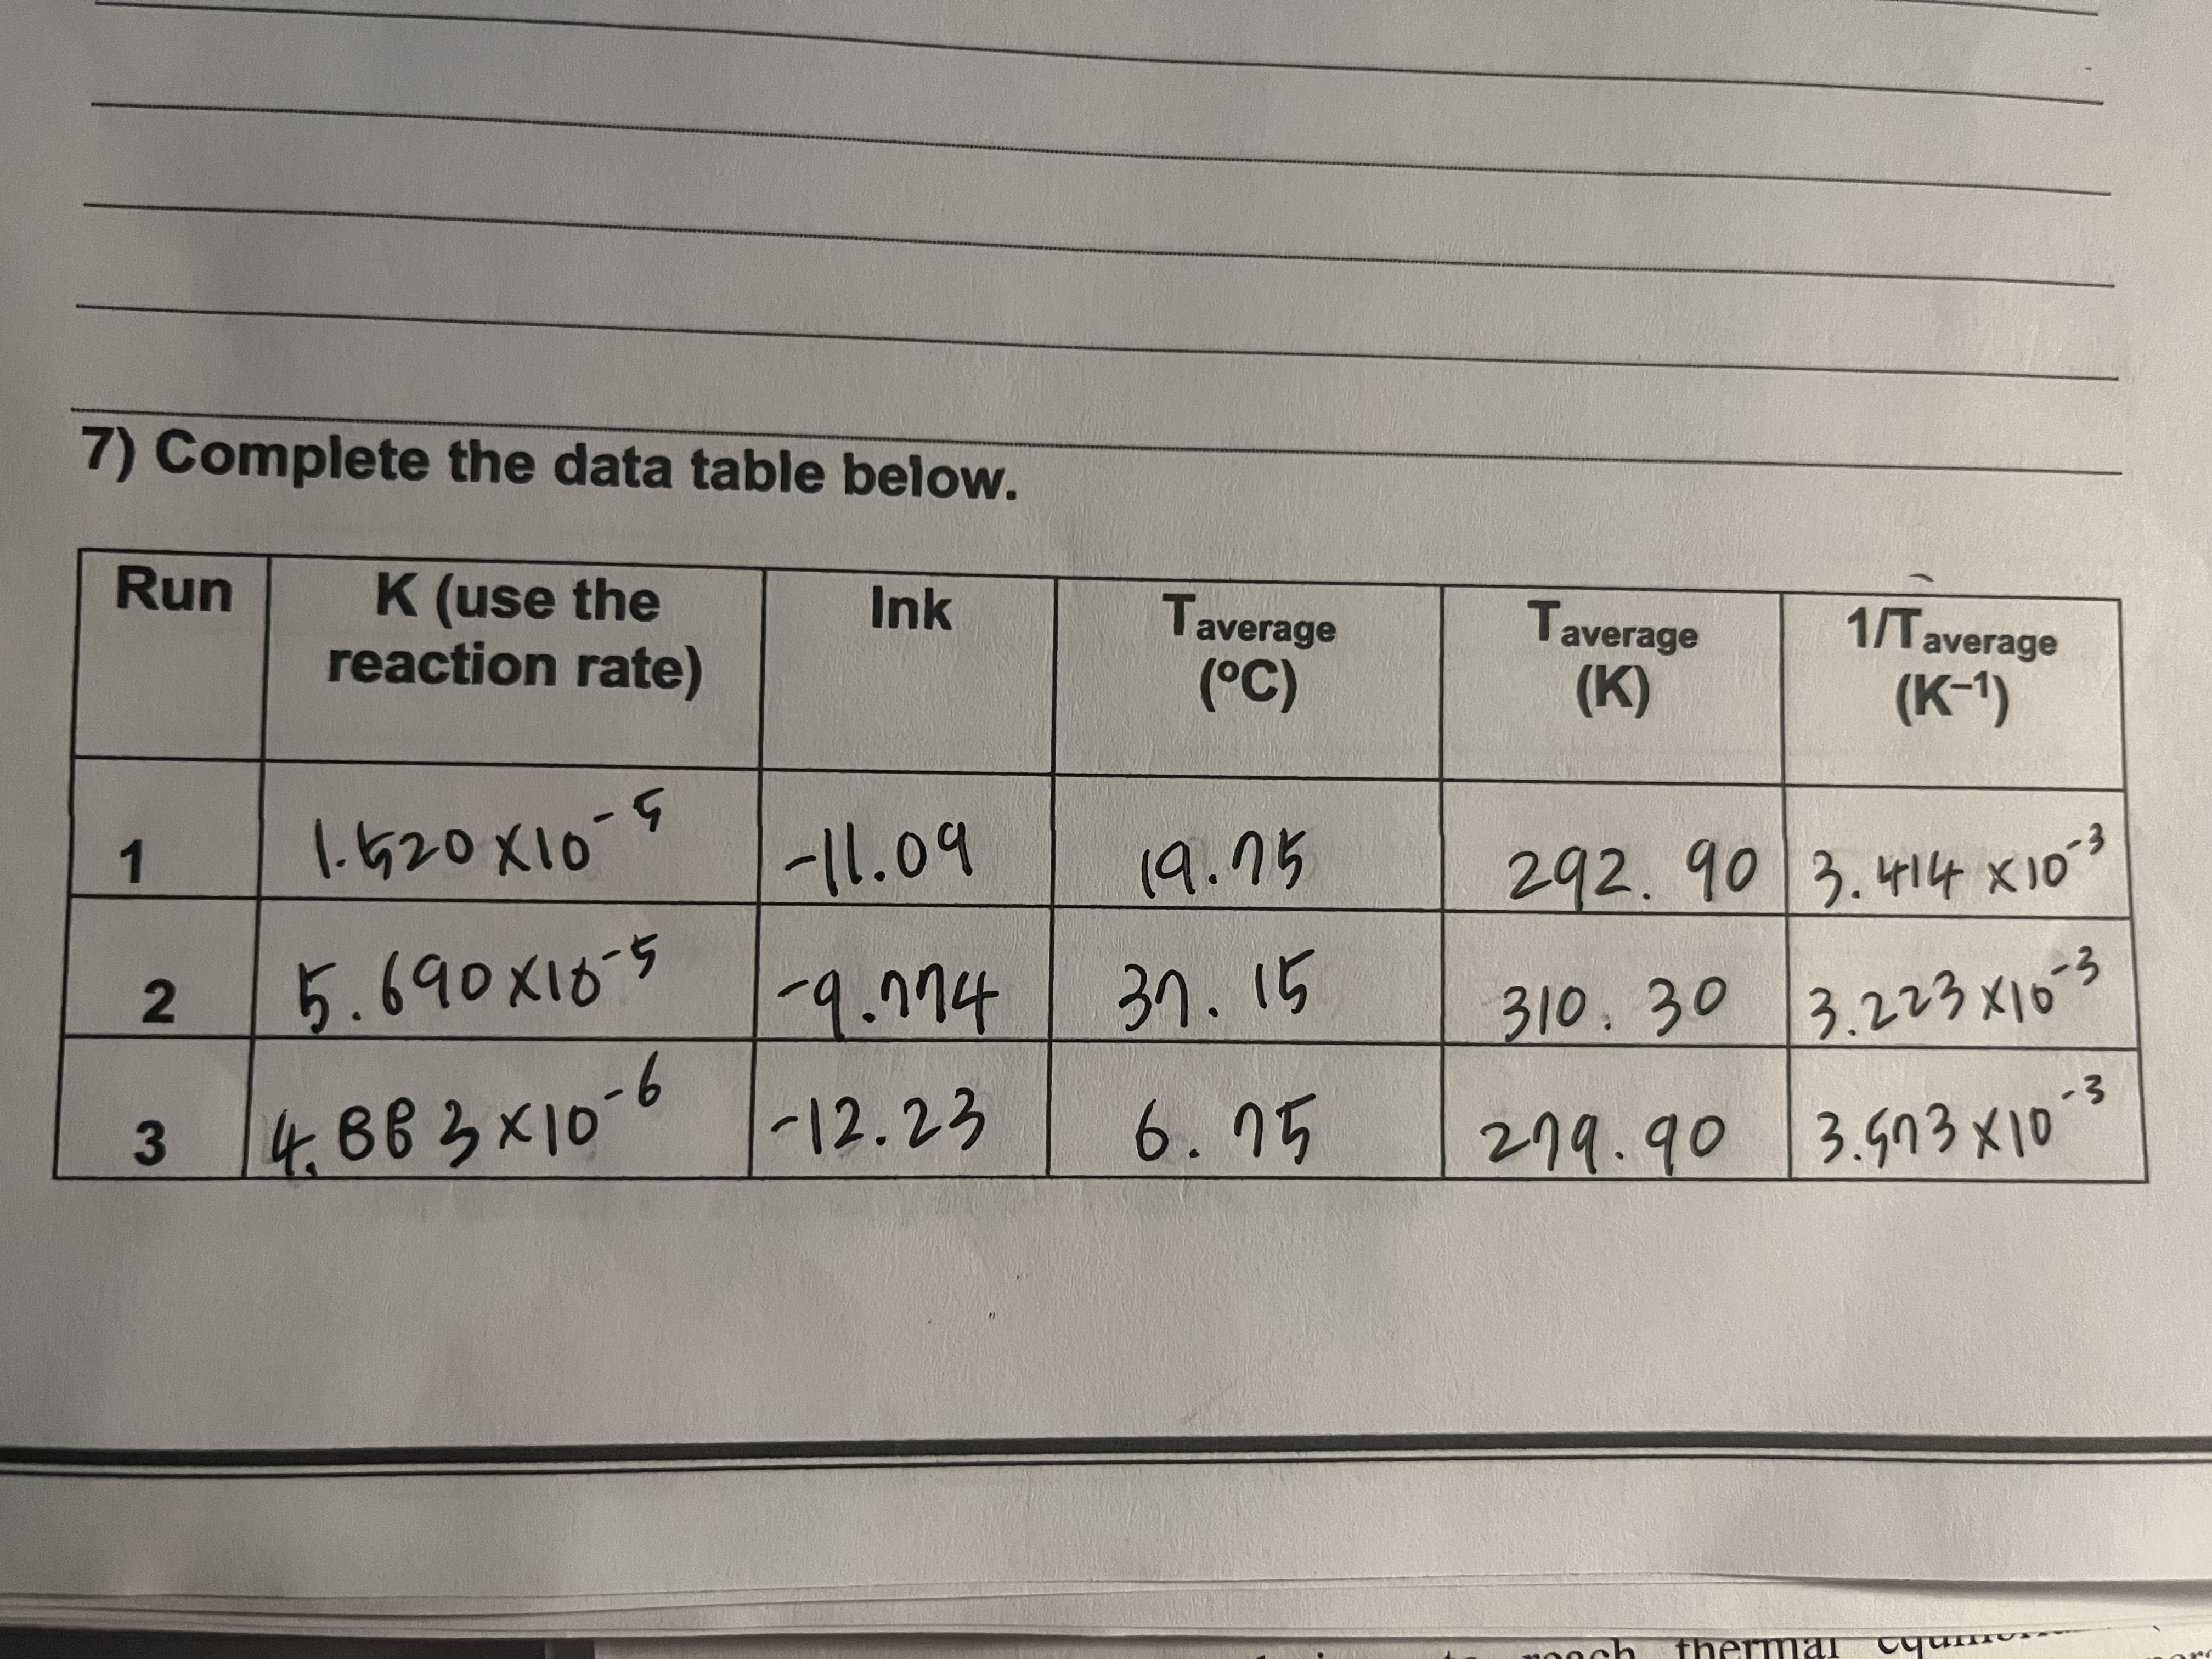 7) Complete the data table below.
Run K (use the reaction rate) lnk Taverage (ºC) Taverage (K) 1/Taverage (K⁻¹)
1 1.520 x10⁻⁵ -11.09 19.75 292.90 3.414 x10⁻³
2 5.690 x10⁻⁵ -9.774 37.15 310.30 3.223 x10⁻³
3 4.883 x10⁻⁶ -12.23 6.75 279.90 3.573 x10⁻³
reach thermal